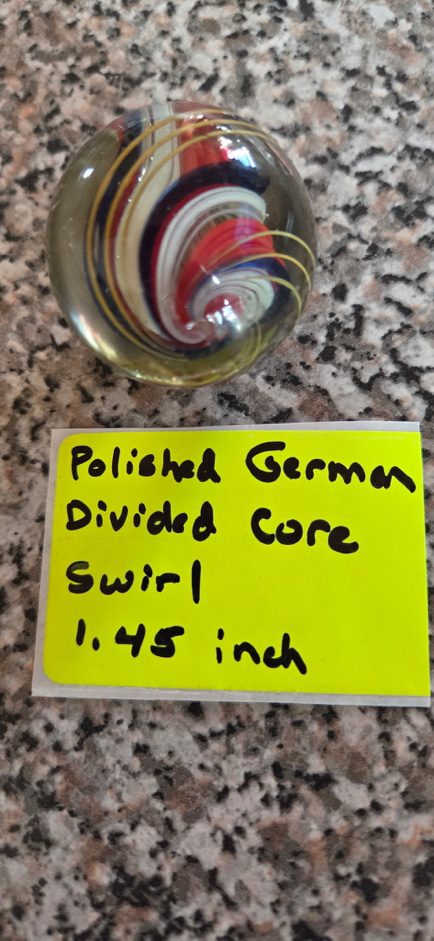 Polished German
Divided Core
Swirl
1.45 inch